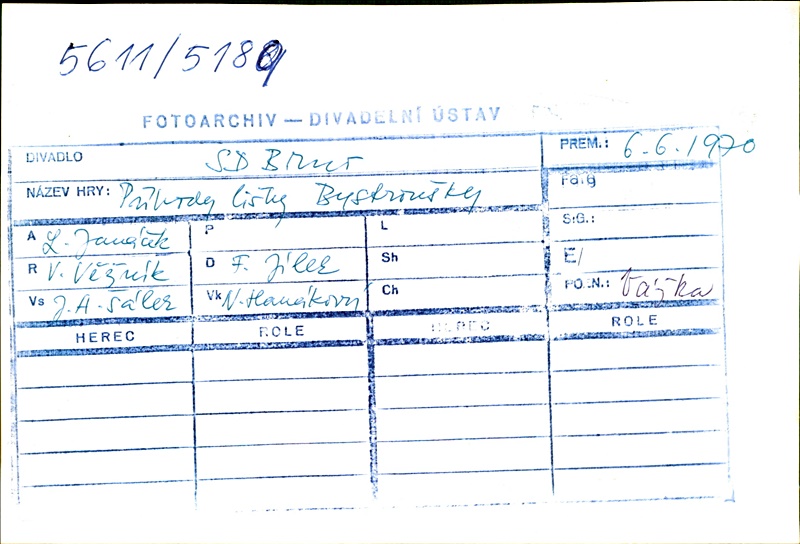 5611/5189
FOTOARCHIV — DIVADELNÍ ÚSTAV
DIVADLO SD Brno PREM.: 6.6.1970
NÁZEV HRY: Příhody lišky Bystroušky
A L. Janáček P L SIG.:
R V. Věžník D F. Jílek Sh
Vs J.A. Šálek Vk N. Hanáková Ch POZN.:
HEREC ROLE HEREC ROLE